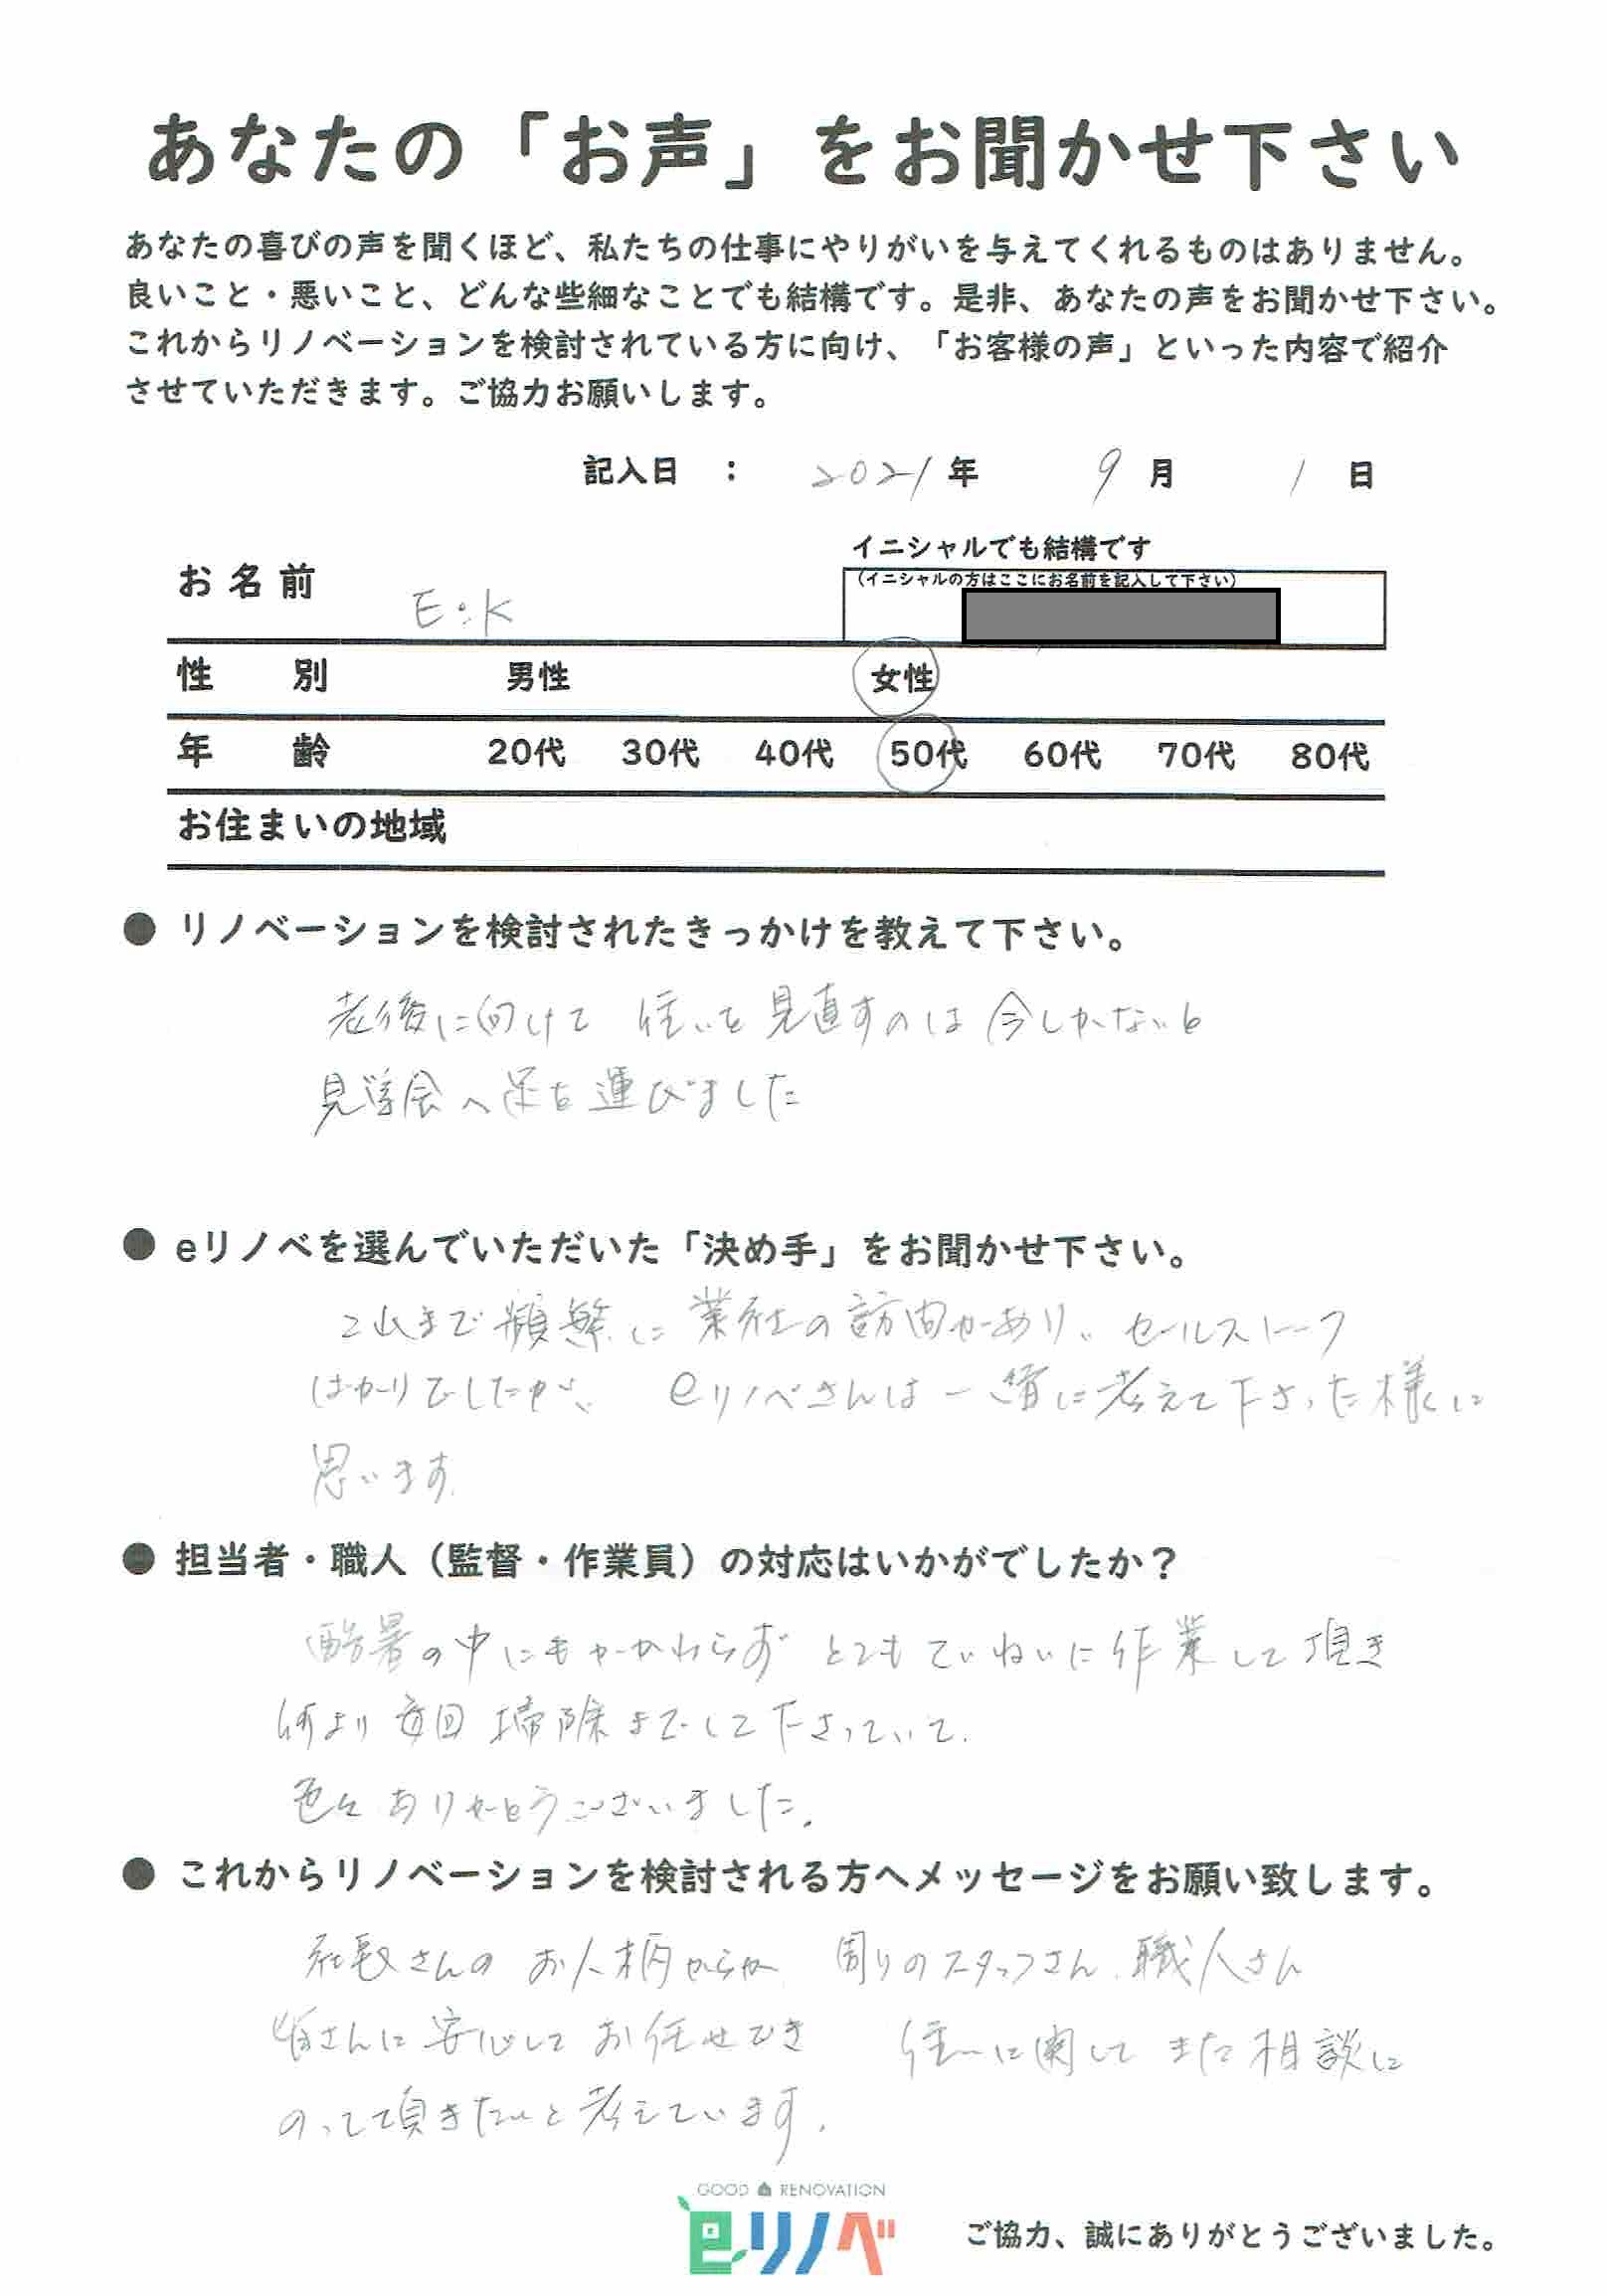 あなたの「お声」をお聞かせ下さい
あなたの喜びの声を聞くほど、私たちの仕事にやりがいを与えてくれるものはありません。
良いこと・悪いこと、どんな些細なことでも結構です。是非、あなたの声をお聞かせ下さい。
これからリノベーションを検討されている方に向け、「お客様の声」といった内容で紹介
させていただきます。ご協力お願いします。
記入日 : 2021年 9月 1日
イニシャルでも結構です
(イニシャルの方はここにお名前を記入して下さい)
お名前 E.K
性別 男性 女性
年齢 20代 30代 40代 50代 60代 70代 80代
お住まいの地域
● リノベーションを検討されたきっかけを教えて下さい。
老後に向けて 住いを見直すのは今しかないと
見学会へ足を運びました
● eリノベを選んでいただいた「決め手」をお聞かせ下さい。
これまで頻繁に業社の訪問があり、セールストーク
ばかりでしたが、eリノベさんは一緒に考えて下さった様に
思います。
● 担当者・職人（監督・作業員）の対応はいかがでしたか？
酷暑の中にもかかわらず とてもていねいに作業して頂き
何より毎回掃除までして下さっていて、
色々ありがとうございました。
● これからリノベーションを検討される方へメッセージをお願い致します。
社長さんのお人柄からか、周りのスタッフさん、職人さん
皆さんに安心してお任せでき 住いに関してまた相談に
のって頂きたいと考えています。
GOOD RENOVATION
eリノベ
ご協力、誠にありがとうございました。